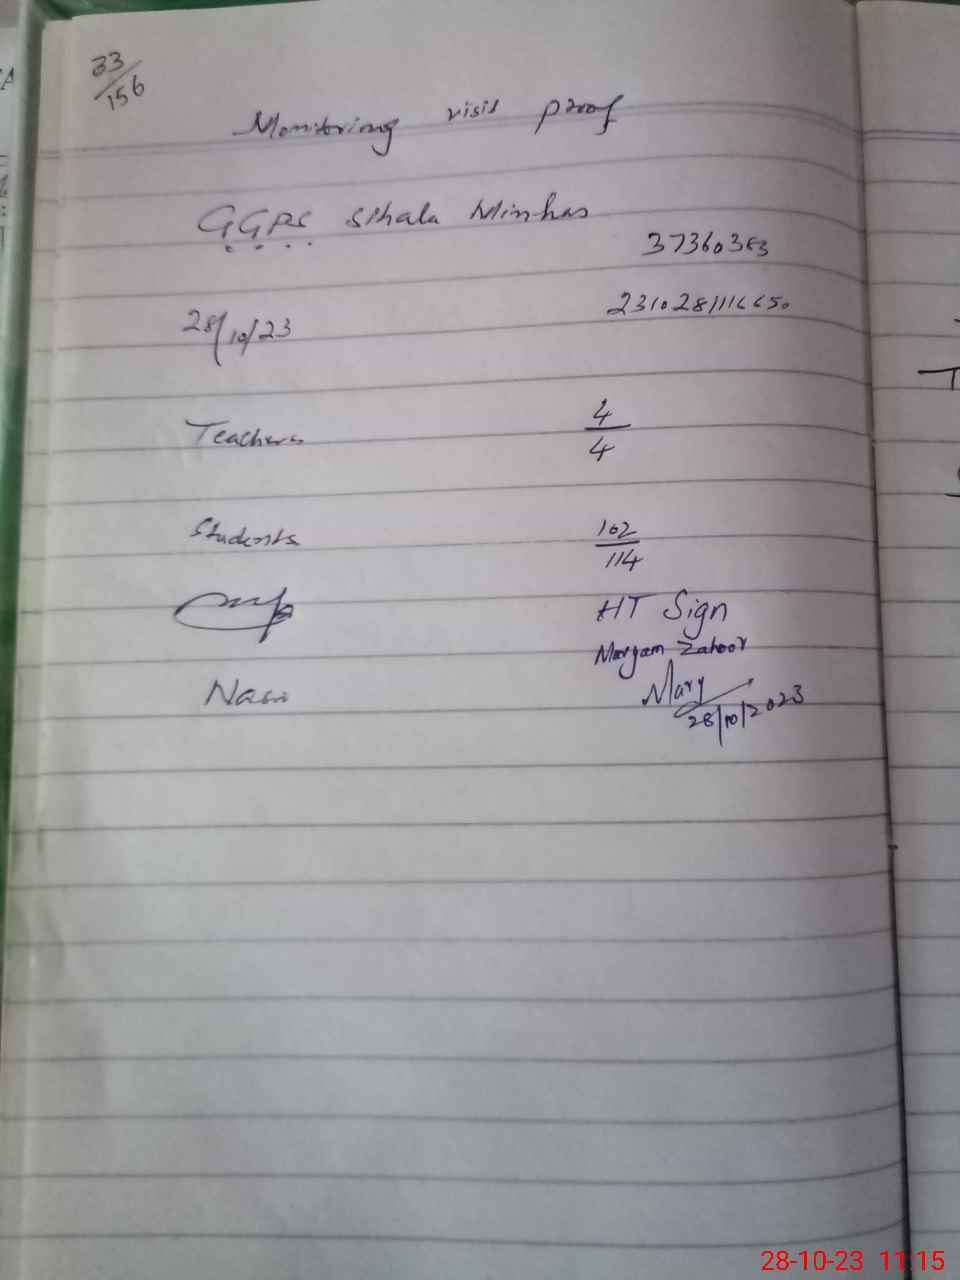 33/156
Monitoring visit proof
G.G.P.S. Sihala Minhas
37360363
28/10/23
Teachers 4/4
Students 102/114
HT Sign
Maryam Zahoor
Mary
28/10/2023
28-10-23 11:15